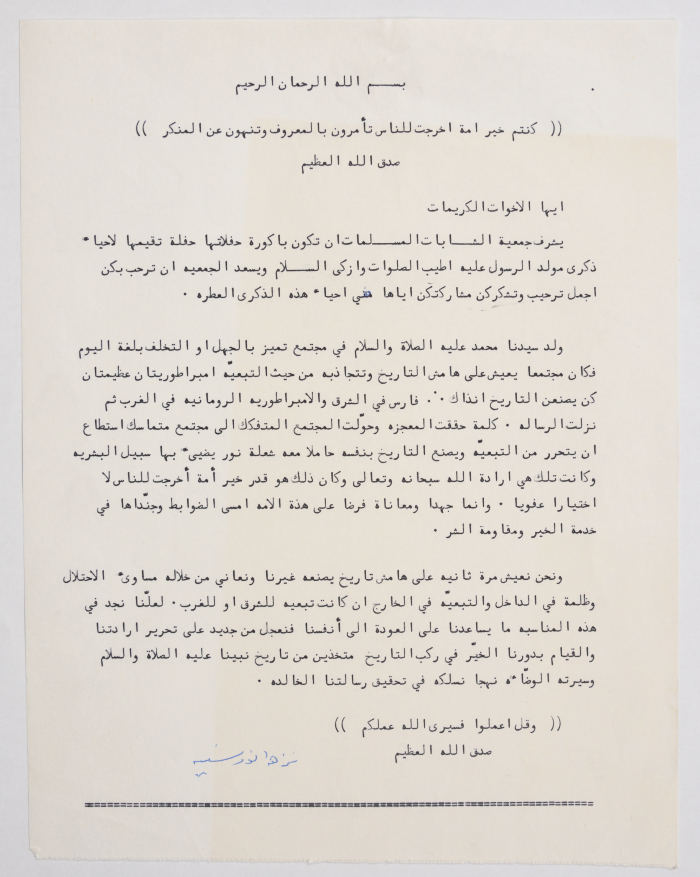 بســـم الله الرحمان الرحيم
(( كنتم خير امة اخرجت للناس تأمرون بالمعروف وتنهون عن المنكر ))
صدق الله العظيم
ايها الاخوات الكريمات
يشرف جمعية الشــابات المســلمات ان تكون باكورة حفلاتها حفلة تقيمها لاحياء
ذكرى مولد الرسول عليه اطيب الصلوات وازكى الســلام ويسعد الجمعيه ان ترحب بكن
اجمل ترحيب وتشكركن مشاركتكن اياها في احياء هذه الذكرى العطره .
ولد سيدنا محمد عليه الصلاة والسلام في مجتمع تميز بالجهل او التخلف بلغة اليوم
فكان مجتمعا يعيش على هامش التاريخ وتتجاذبه من حيث التبعيّه امبراطوريتان عظيمتان
كن يصنعن التاريخ انذاك .. فارس في الشرق والامبراطوريه الرومانيه في الغرب ثم
نزلت الرساله . كلمة حققت المعجزه وحوّلت المجتمع المتفكك الى مجتمع متماسك استطاع
ان يتحرر من التبعيّه ويصنع التاريخ بنفسه حاملا معه شعلة نور يضيء بها سبيل البشريه
وكانت تلك هي ارادة الله سبحانه وتعالى وكان ذلك هو قدر خير أمة أخرجت للناس لا
اختيارا عفويا . وانما جهدا ومعاناة فرضا على هذة الامه امسى الضوابط وجنّداها في
خدمة الخير ومقاومة الشر .
ونحن نعيش مرة ثانيه على هامش تاريخ يصنعه غيرنا ونعاني من خلاله مساوىء الاحتلال
وظلمة في الداخل والتبعيّه في الخارج ان كانت تبعيه للشرق او للغرب . لعلّنا نجد في
هذه المناسبه ما يساعدنا على العودة الى أنفسنا فنعجل من جديد على تحرير ارادتنا
والقيام بدورنا الخيّر في ركب التاريخ متخذين من تاريخ نبينا عليه الصلاة والسلام
وسيرته الوضّاءه نهجا نسلكه في تحقيق رسالتنا الخالده .
(( وقل اعملوا فسيرى الله عملكم ))
صدق الله العظيم